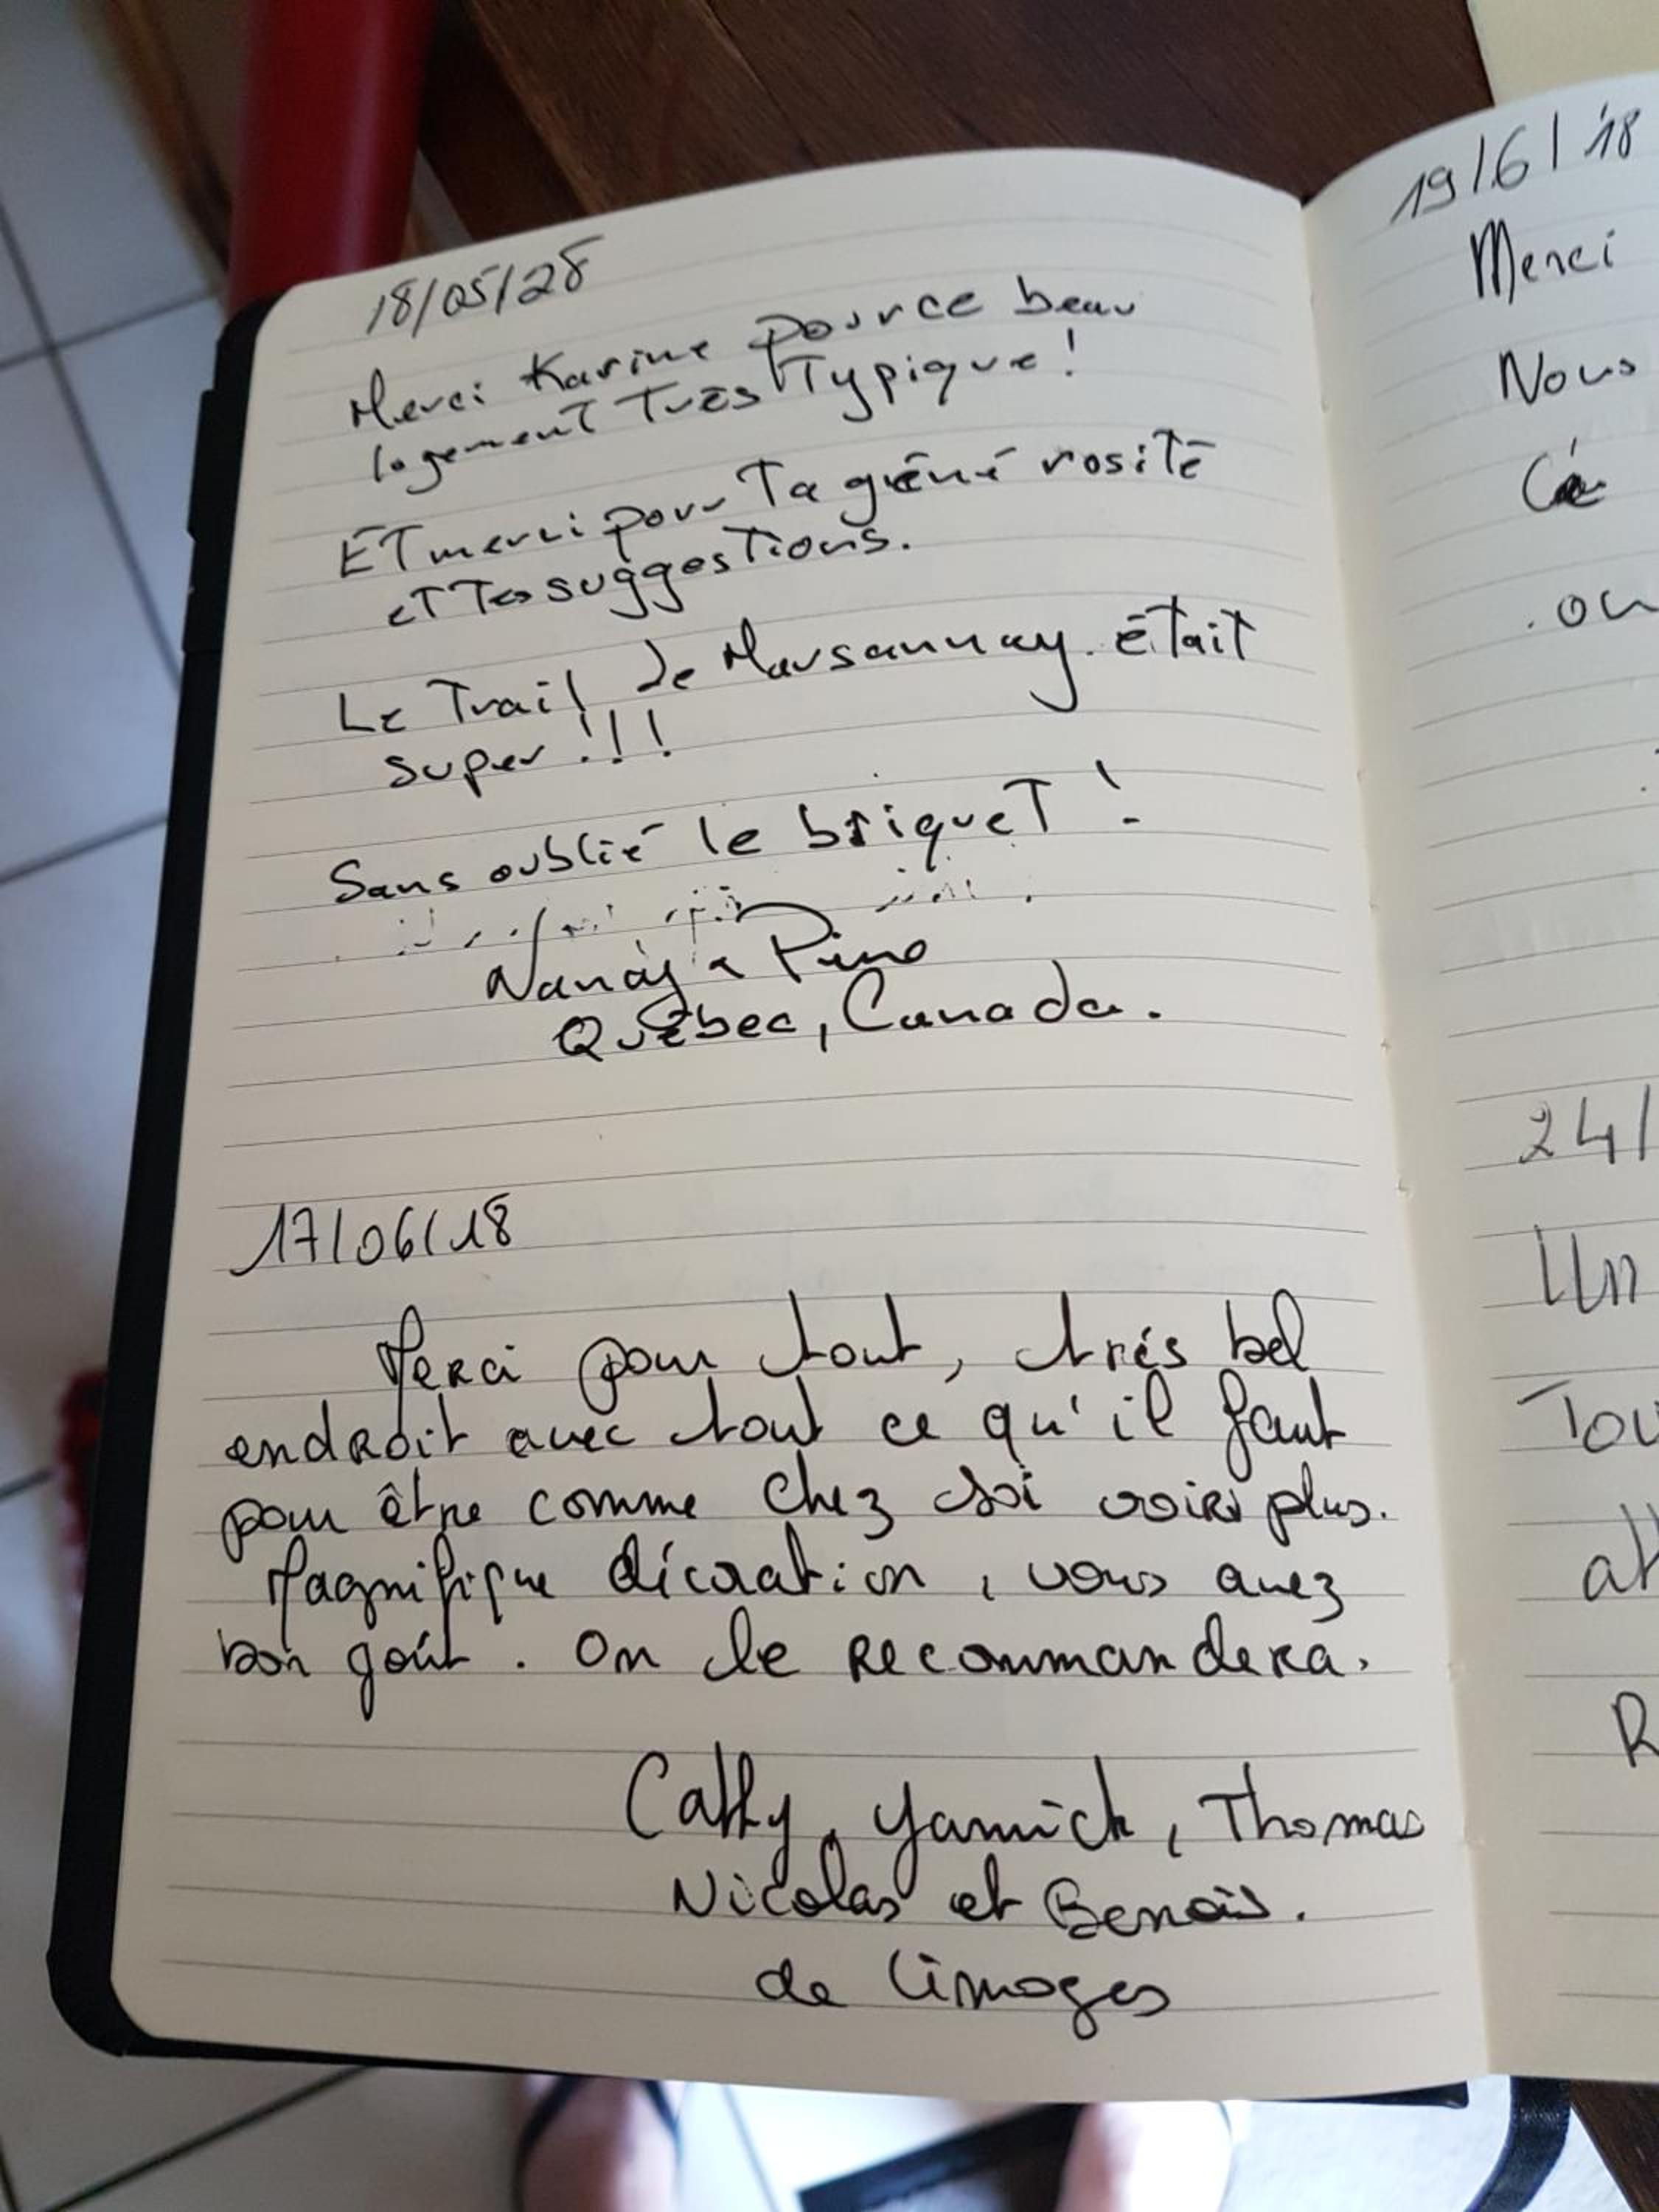 18/05/28
Merci Karine pour ce beau
logement Très Typique!
ET merci pour Ta générosité
eT Tes suggestions.
Le Trail de Marsannay était
super!!!
Sans oublié le briqueT!
Nancy & Pino
Québec, Canada.
17/06/18
Merci pour tout, trés bel
endroit avec tout ce qu'il faut
pour être comme chez soi voire plus.
Magnifique décoration, vous avez
bon goût. On le recommandera.
Cathy, Yannick, Thomas
Nicolas et Benoît.
de Limoges
19/6/18
Merci
Nous
24/
Un
Tou
R